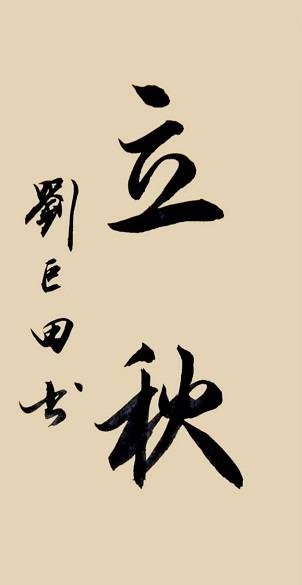 立秋
劉巨田书